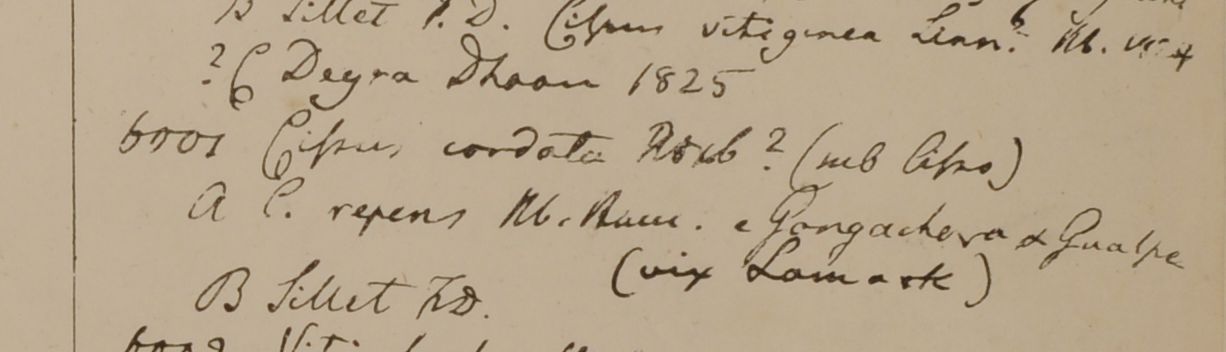 B Sillet F. D. Cissus vitiginea Linn? Hb.
? C Deyra Dhoon 1825
6001 Cissus cordata Roxb? (sub Cisso)
A C. repens Hb. Ham. e Gongachora & Gualpa
(vix Lamark)
B Sillet F.D.